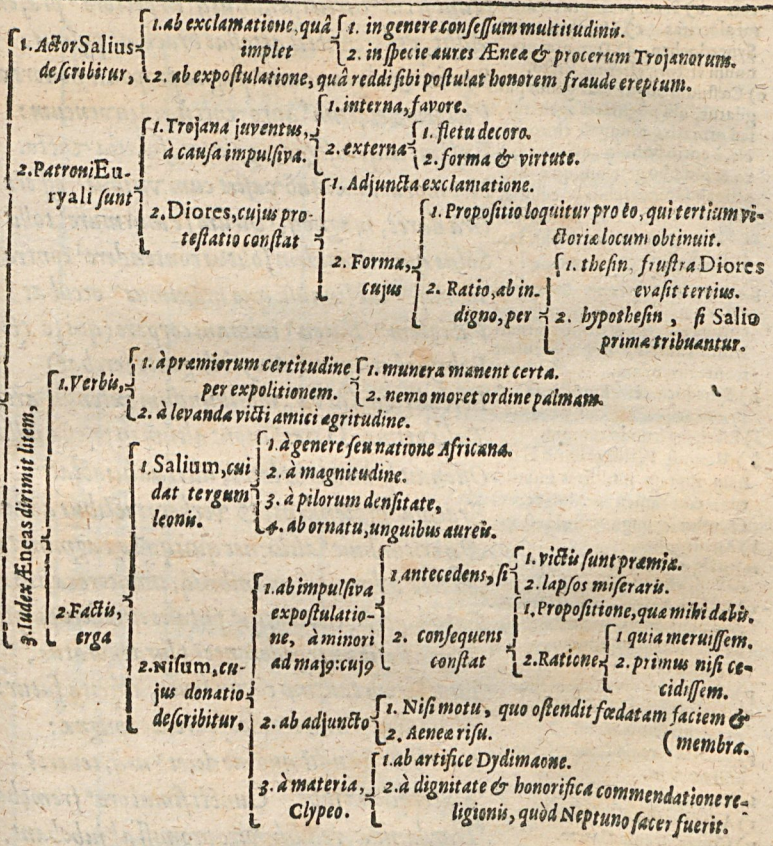 1. Actor Salius
describitur,
1. ab exclamatione, quâ
implet
1. in genere conſeſſum multitudinis.
2. in ſpecie aures Æneæ & procerum Trojanorum.
2. ab expoſtulatione, quâ reddi ſibi poſtulat honorem fraude ereptum.
2. Patroni Eu-
ryali ſunt
1. Trojana juventus,
à cauſa impulſiva.
1. interna, favore.
2. externa
1. fletu decoro.
2. forma & virtute.
2. Diores, cujus pro-
teſtatio conſtat
1. Adjuncta exclamatione.
2. Forma,
cujus
1. Propoſitio loquitur pro eo, qui tertium vi-
ctoriæ locum obtinuit.
2. Ratio, ab in-
digno, per
1. theſin, fruſtra Diores
evaſit tertius.
2. hypotheſin, ſi Salio
primæ tribuantur.
3. Iudex Æneas dirimit litem,
1. Verbis,
1. à præmiorum certitudine
per expolitionem.
1. munera manent certa.
2. nemo movet ordine palmam.
2. à levanda victi amici ægritudine.
2. Factis,
erga
1. Salium, cui
dat tergum
leonis.
1. à genere ſeu natione Africana.
2. à magnitudine.
3. à pilorum denſitate,
4. ab ornatu, unguibus aureis.
2. Niſum, cu-
jus donatio
deſcribitur,
1. ab impulſiva
expoſtulatio-
ne, à minori
ad maj9: cuj9
1. antecedens, ſi
1. victis ſunt præmia.
2. lapſos miſeraris.
2. conſequens
conſtat
1. Propoſitione, quæ mihi dabis.
2. Ratione
1 quia meruiſſem.
2. primus niſi ce-
cidiſſem.
2. ab adjuncto
1. Niſi motu, quo oſtendit fœdatam faciem &
(membra.
2. Aeneæ riſu.
3. à materia,
Clypeo.
1. ab artifice Dydimaone.
2. à dignitate & honorifica commendatione re-
ligionis, quòd Neptuno ſacer fuerit.